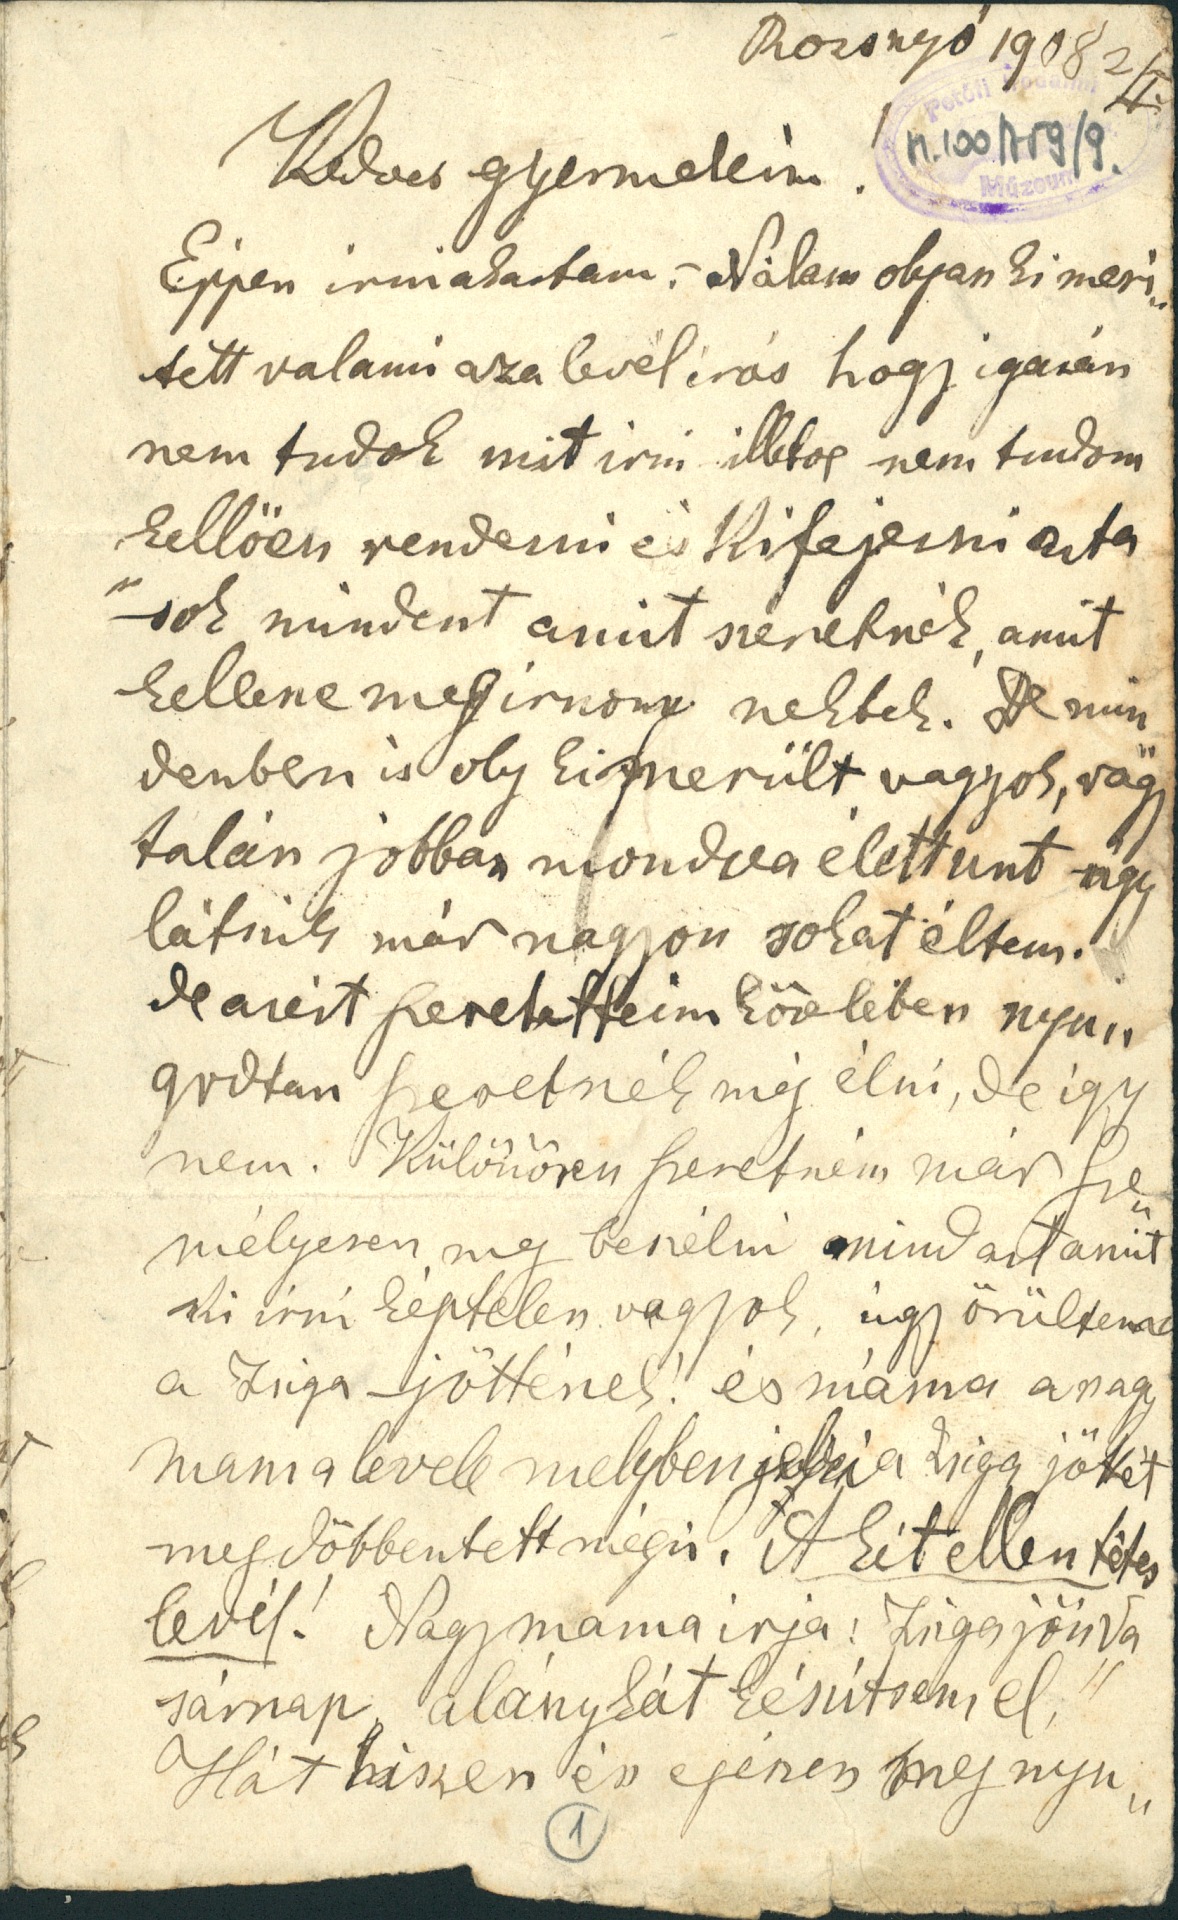 Rozsnyó 1908 2/II.
Petőfi Irodalmi
n.100/159/9.
Múzeum
Kedves gyermekeim!
Eppen irniakartam. – Nálam olyan ki meri„
tett valami aza levél írás hogy igazán
nem tudok mit irni illetve nem tudom
kellöen rendezni és kifejezni azta
"sok mindent amit szeretnék, amit
kellene megirnom nektek. De min
denben is oly kimerült vagyok, vagy
talán jobban mondva élettunt úgy
látszik már nagyon sokat éltem.
de azért szeretetteim közelében nyu„
godtan szeretnék még élni, de így
nem. Különösen szeretném már sze„
mélyesen meg beszélni mind azt amit
ki irni képtelen vagyok, úgy örültem
a Zsiga jöttének! és máma a nagy
mama levele melyben jelzi a Zsiga jöttét
megdöbbentett mégis. A két ellentétes
levél! Nagymama irja: Zsiga jön Va
sárnap „a lánykát készítsem el!"
Hát hiszen én egészen meg nyu„
1